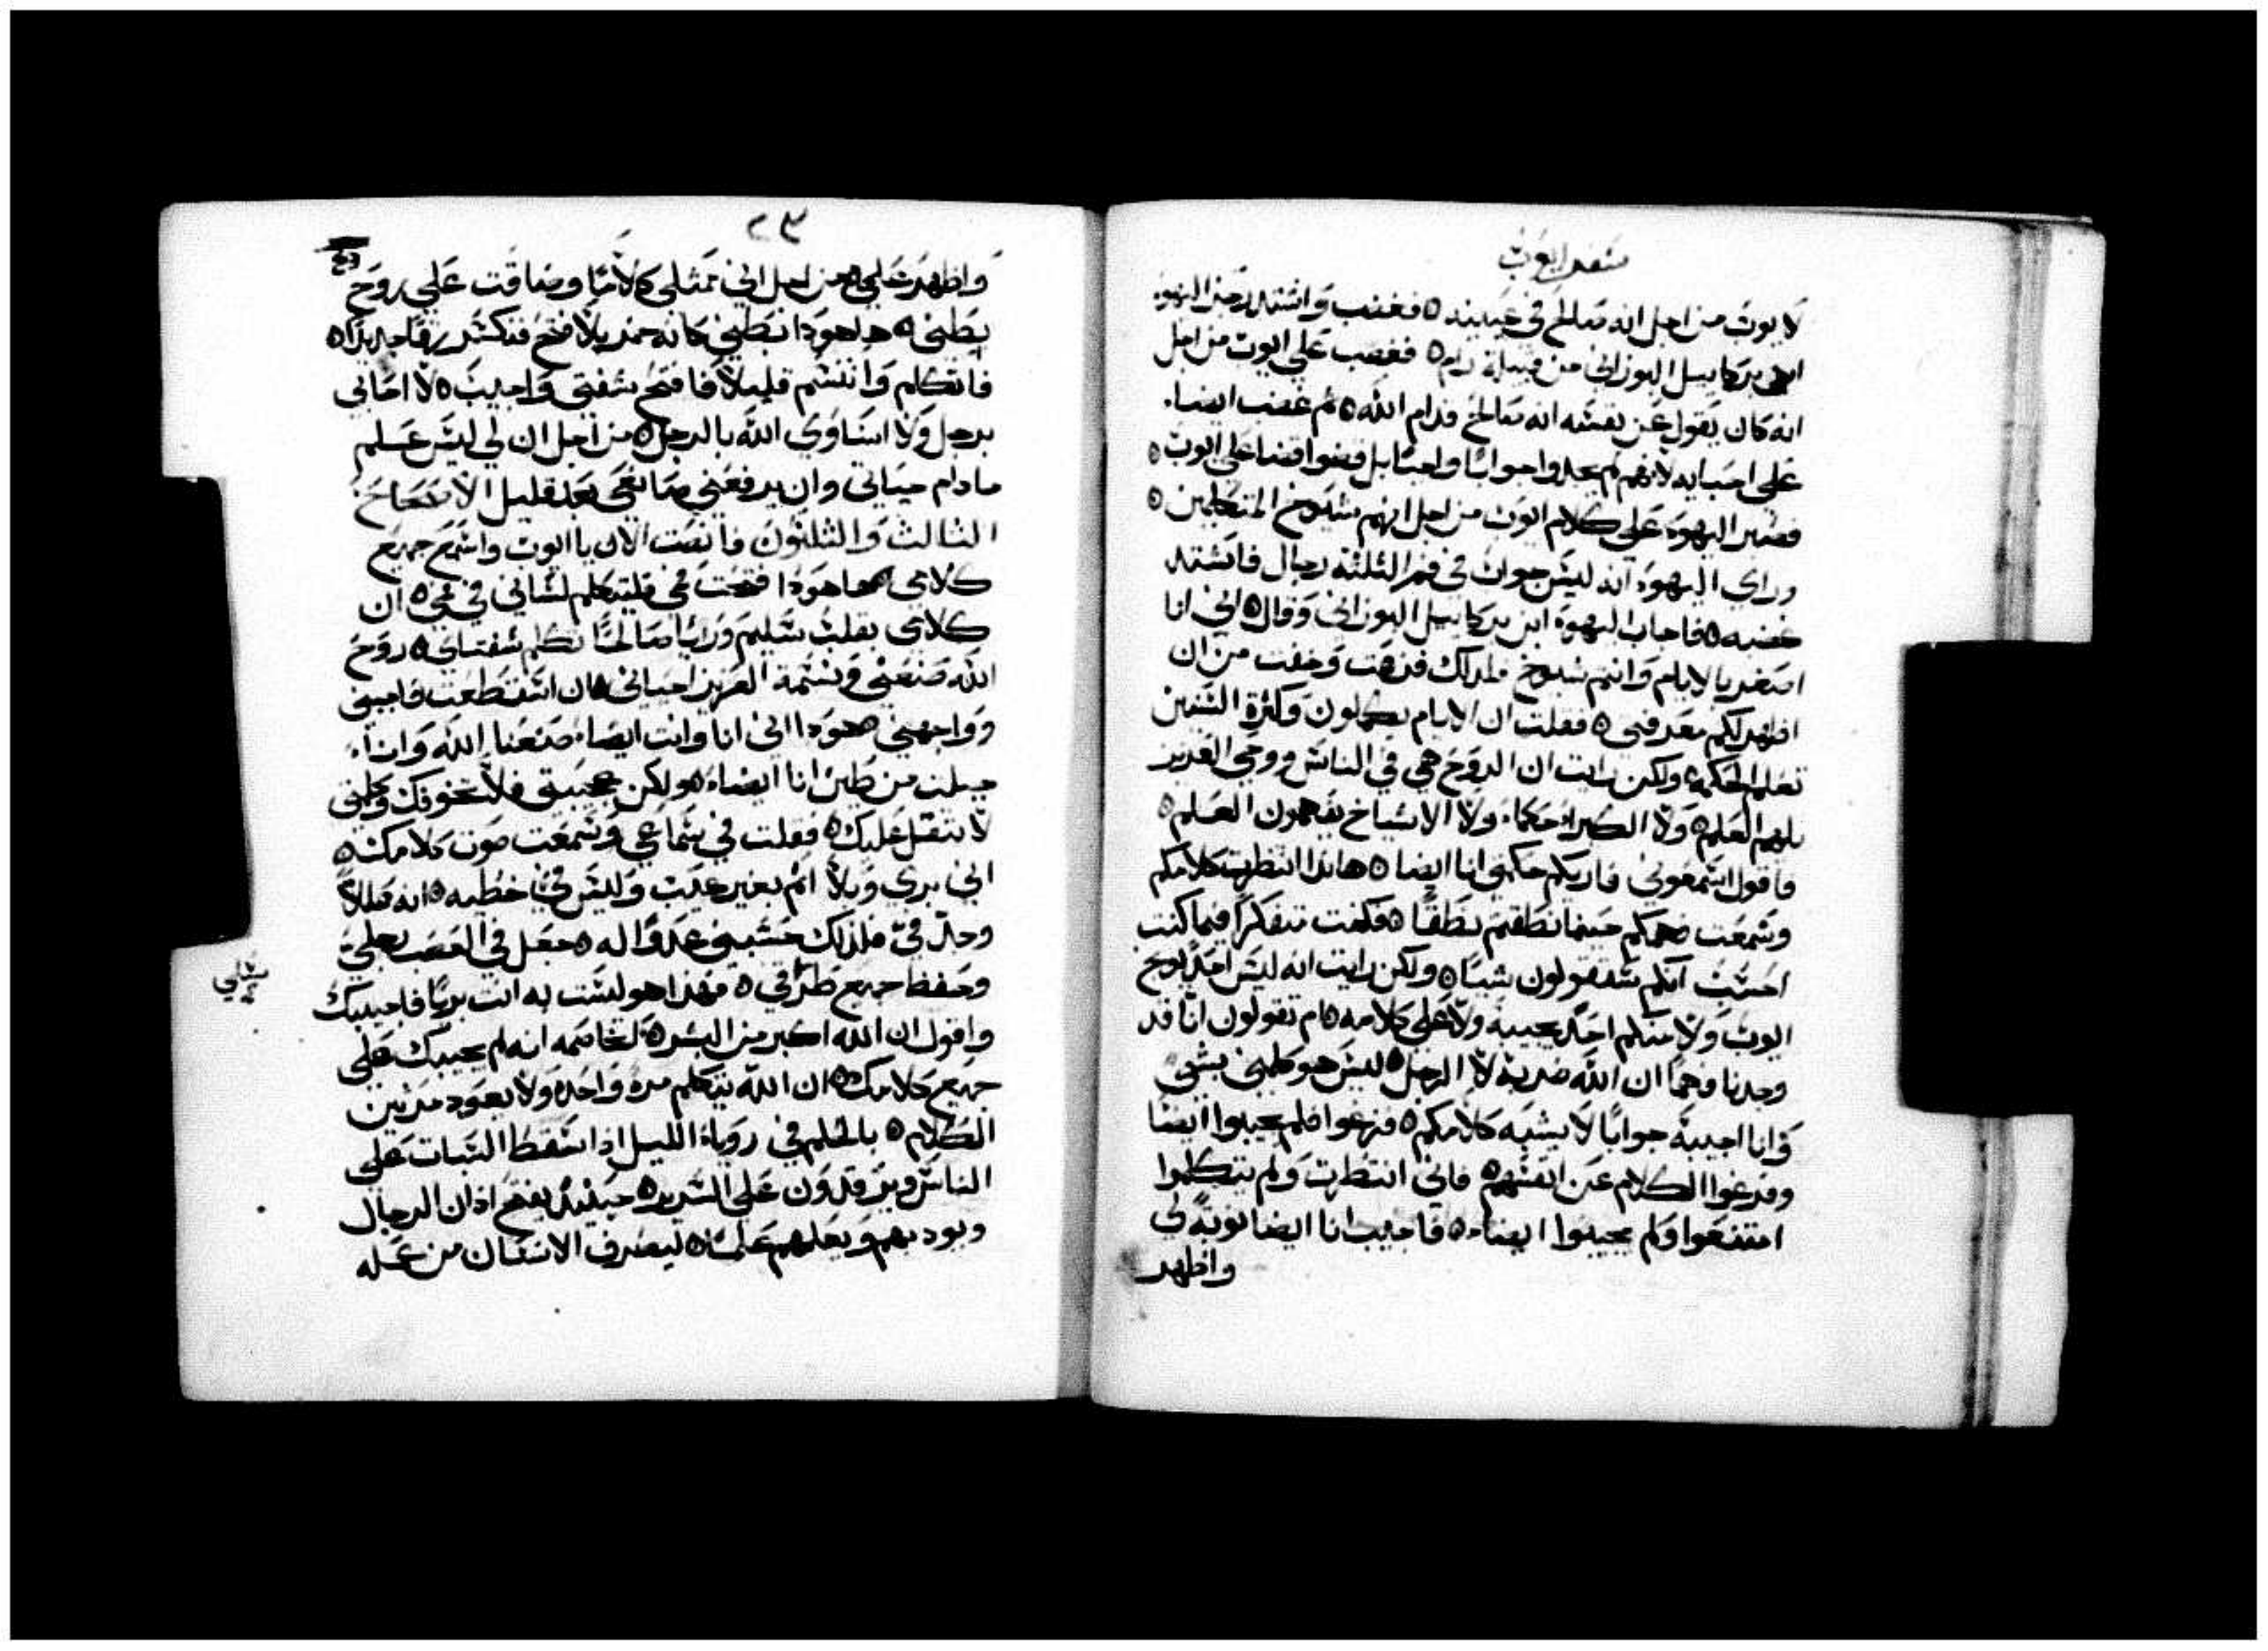 سفر ايوب
لايوب من اجل انه صالح في عينيه ٥ فغضب واشتد رجز اليهوه
ابن بركاييل البوزاني من قبيلة رام ٥ فغضب علي ايوب من اجل
انه كان يقول عن نفسه انه صالح قدام الله ٥ ثم غضب ايضا
علي احبابه لانهم لم يجدوا جوابا واحتا بل قضوا قضا علي ايوب ٥
فصبر اليهوه علي كلام ايوب من اجل انهم شيوخ المتكلمين ٥
وراي اليهوه انه ليس جواب في فم الثلثه رجال فاشتد
غضبه ٥ فاجاب اليهوه ابن بركاييل البوزاني وقال ٥ اني انا
اصغر بالايام وانتم شيوخ فلدلك فزعت وخفت من ان
اظهر لكم معرفتي ٥ فقلت ان الايام يتكلمون وكثرة السنين
تعلم الحكمه ولكن رايت ان الروح هي في الناس ووحي العزيز
يلهم العلم ٥ ولا الكبرا حكماء ولا الاشياخ يفهمون العلم ٥
فاقول اسمعوني فاريكم حكمتي انا ايضا ٥ هاندا انتظرت كلامكم
وسمعت فهمكم حينما نطقتم نطقا ٥ فكنت متفكرا فيما كنت
احسب انكم ستقولون شيا ٥ ولكن رايت انه ليس احدا يوبخ
ايوب ولا منكم احد يجيبه ولا علي كلامه ٥ ام تقولون انا قد
وجدنا فهما ان الله ضربه لا الرجل ٥ ليس هو كلمني بشي
وانا اجيبه جوابا لا يشبه كلامكم ٥ فزعوا فلم يجيبوا ايضا
وفرغوا الكلام عن انفسهم ٥ فاني انتظرت ولم يتكلموا
امتنعوا ولم يجيبوا ايضا ٥ فاجيب انا ايضا نوبة لي
واظهر
٢٣
واظهر علمي من اجل اني ممتلي كلاما وضاقت علي روح
بطني ٥ هاهودا بطني كانه خمر بلا فتح فتكسر زقا جديدا ٥
فاتكلم واتنسم قليلا فافتح شفتي واجيب ٥ لا احابي
برجل ولا اساوي الله بالرجل ٥ من اجل ان لي ليس علم
مادام حياتي وان يرفعني صانعي بعد قليل الاصحاح
الثالث والثلثون فانصت الان يا ايوب واسمع جميع
كلامي هاهودا فتحت في فليتكلم لساني في في ٥ ان
كلامي بقلب سليم ورايا صالحا تكلم شفتاي ٥ روح
الله صنعني ونسمة العزيز احياني ٥ ان استطعت فاجيبني
وواجهني هودا اني انا وانت ايضا صنعنا الله وانا
جبلت من طين انا ايضا ٥ ولكن هيبتي فلا تخوفك وحكمتي
لا تثقل عليك ٥ فقلت في سماعي وسمعت صوت كلامك ٥
اني بري وبلا اثم بغير عيب وليس في خطيه ٥ انه قللا
وجد في فلدلك حسبني عدوا له ٥ جعل في العصب رجلي
وحفظ جميع طرقي ٥ فهدا هو لست به انت بريا فاجيبك
واقول ان الله اكبر من البشر ٥ تخاصمه انه لم يجيبك علي
جميع كلامك ٥ ان الله يتكلم مرة واحده ولا يعود مرتين
الكلام ٥ بالحلم في روياء الليل ادا سقط السبات علي
الناس ويرقدون علي السرير ٥ حينئد يفتح ادان الرجال
ويودبهم ويعلمهم علمه ٥ ليصرف الانسان من عمله